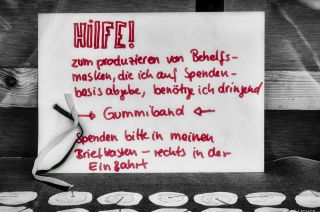 HiLFE!
zum produzieren von Behelfs-
masken, die ich auf Spenden-
basis abgebe, benötige ich dringend
→ Gummiband ←
Spenden bitte in meinen
Briefkasten - rechts in der
Einfahrt